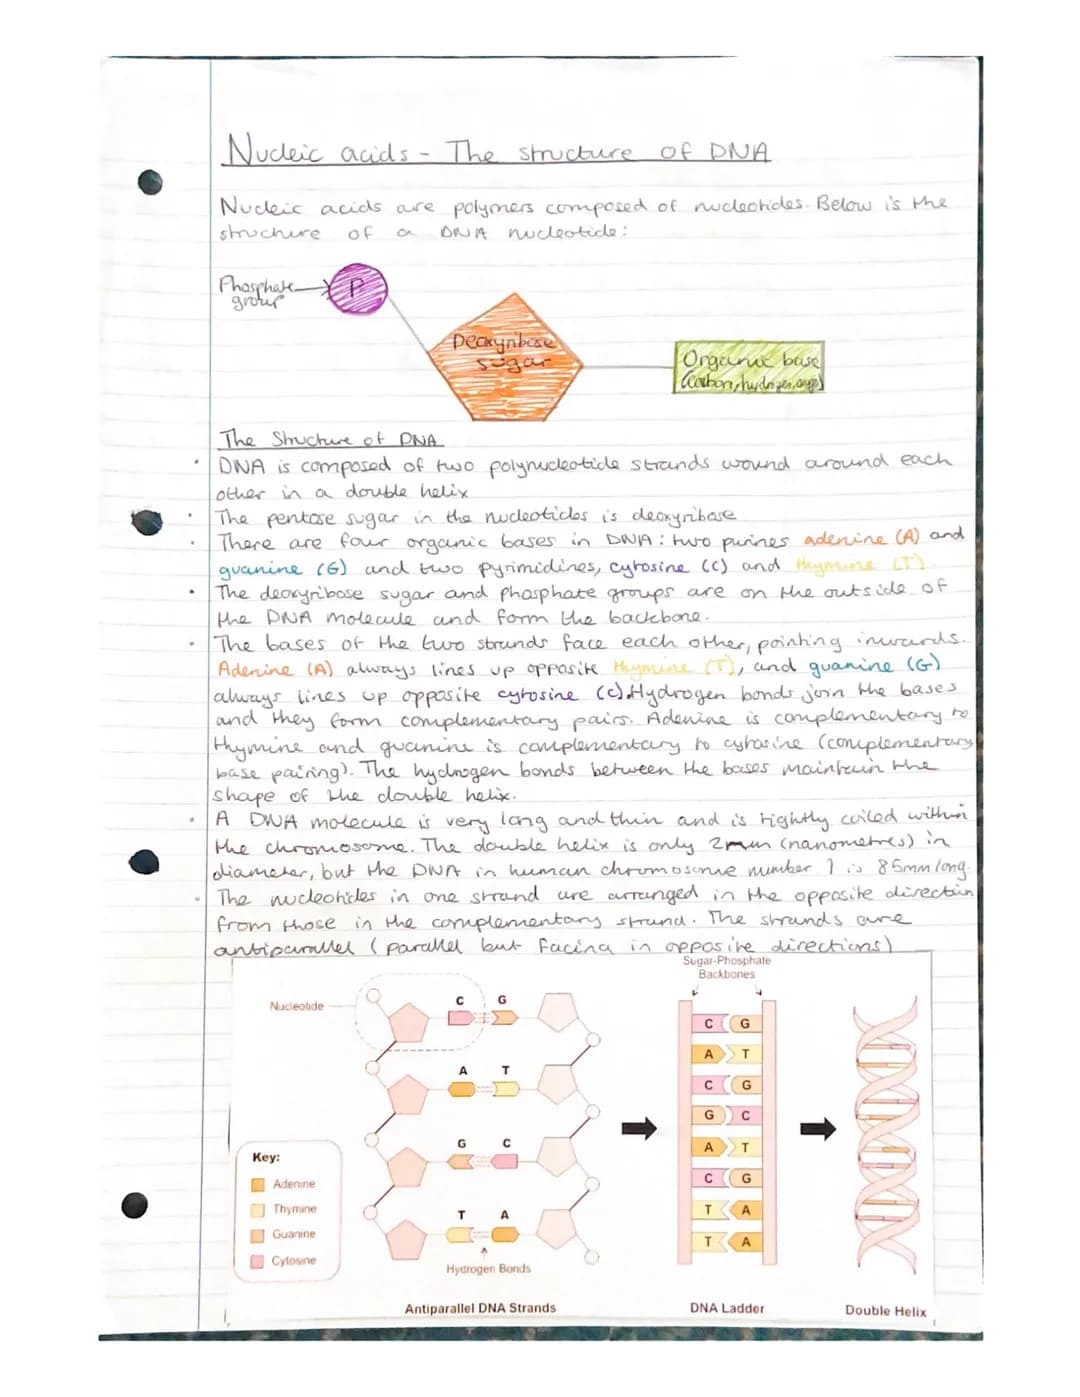 Nucleic acids - The structure of DNA
Nucleic acids are polymers composed of nucleotides. Below is the
structure of a DNA nucleotide:
Phosphate
group
P
Deoxyribose
sugar
Organic base
(carbon, hydrogen,
The Structure of DNA
• DNA is composed of two polynucleotide strands wound around each
other in a double helix
• The pentose sugar in the nucleotides is deoxyribose
• There are four organic bases in DNA: two purines adenine (A) and
guanine (G) and two pyrimidines, cytosine (C) and thymine (T)
• The deoxyribose sugar and phosphate groups are on the outside of
the DNA molecule and form the backbone.
• The bases of the two strands face each other, pointing inwards.
Adenine (A) always lines up opposite thymine (T), and guanine (G)
always lines up opposite cytosine (C). Hydrogen bonds join the bases
and they form complementary pairs. Adenine is complementary to
thymine and guanine is complementary to cytosine (complementary
base pairing). The hydrogen bonds between the bases maintain the
shape of the double helix.
• A DNA molecule is very long and thin and is tightly coiled within
the chromosome. The double helix is only (nanometres) in
diameter, but the DNA in human chromosome number 1 is 85mm long.
• The nucleotides in one strand are arranged in the opposite direction
from those in the complementary strand. The strands are
antiparallel (parallel but facing in opposite directions)
Nucleotide
C G
A T
G C
T A
Hydrogen Bonds
Antiparallel DNA Strands
Key:
Adenine
Thymine
Guanine
Cytosine
Sugar-Phosphate
Backbones
C G
A T
C G
G C
A T
C G
T A
T A
DNA Ladder
Double Helix